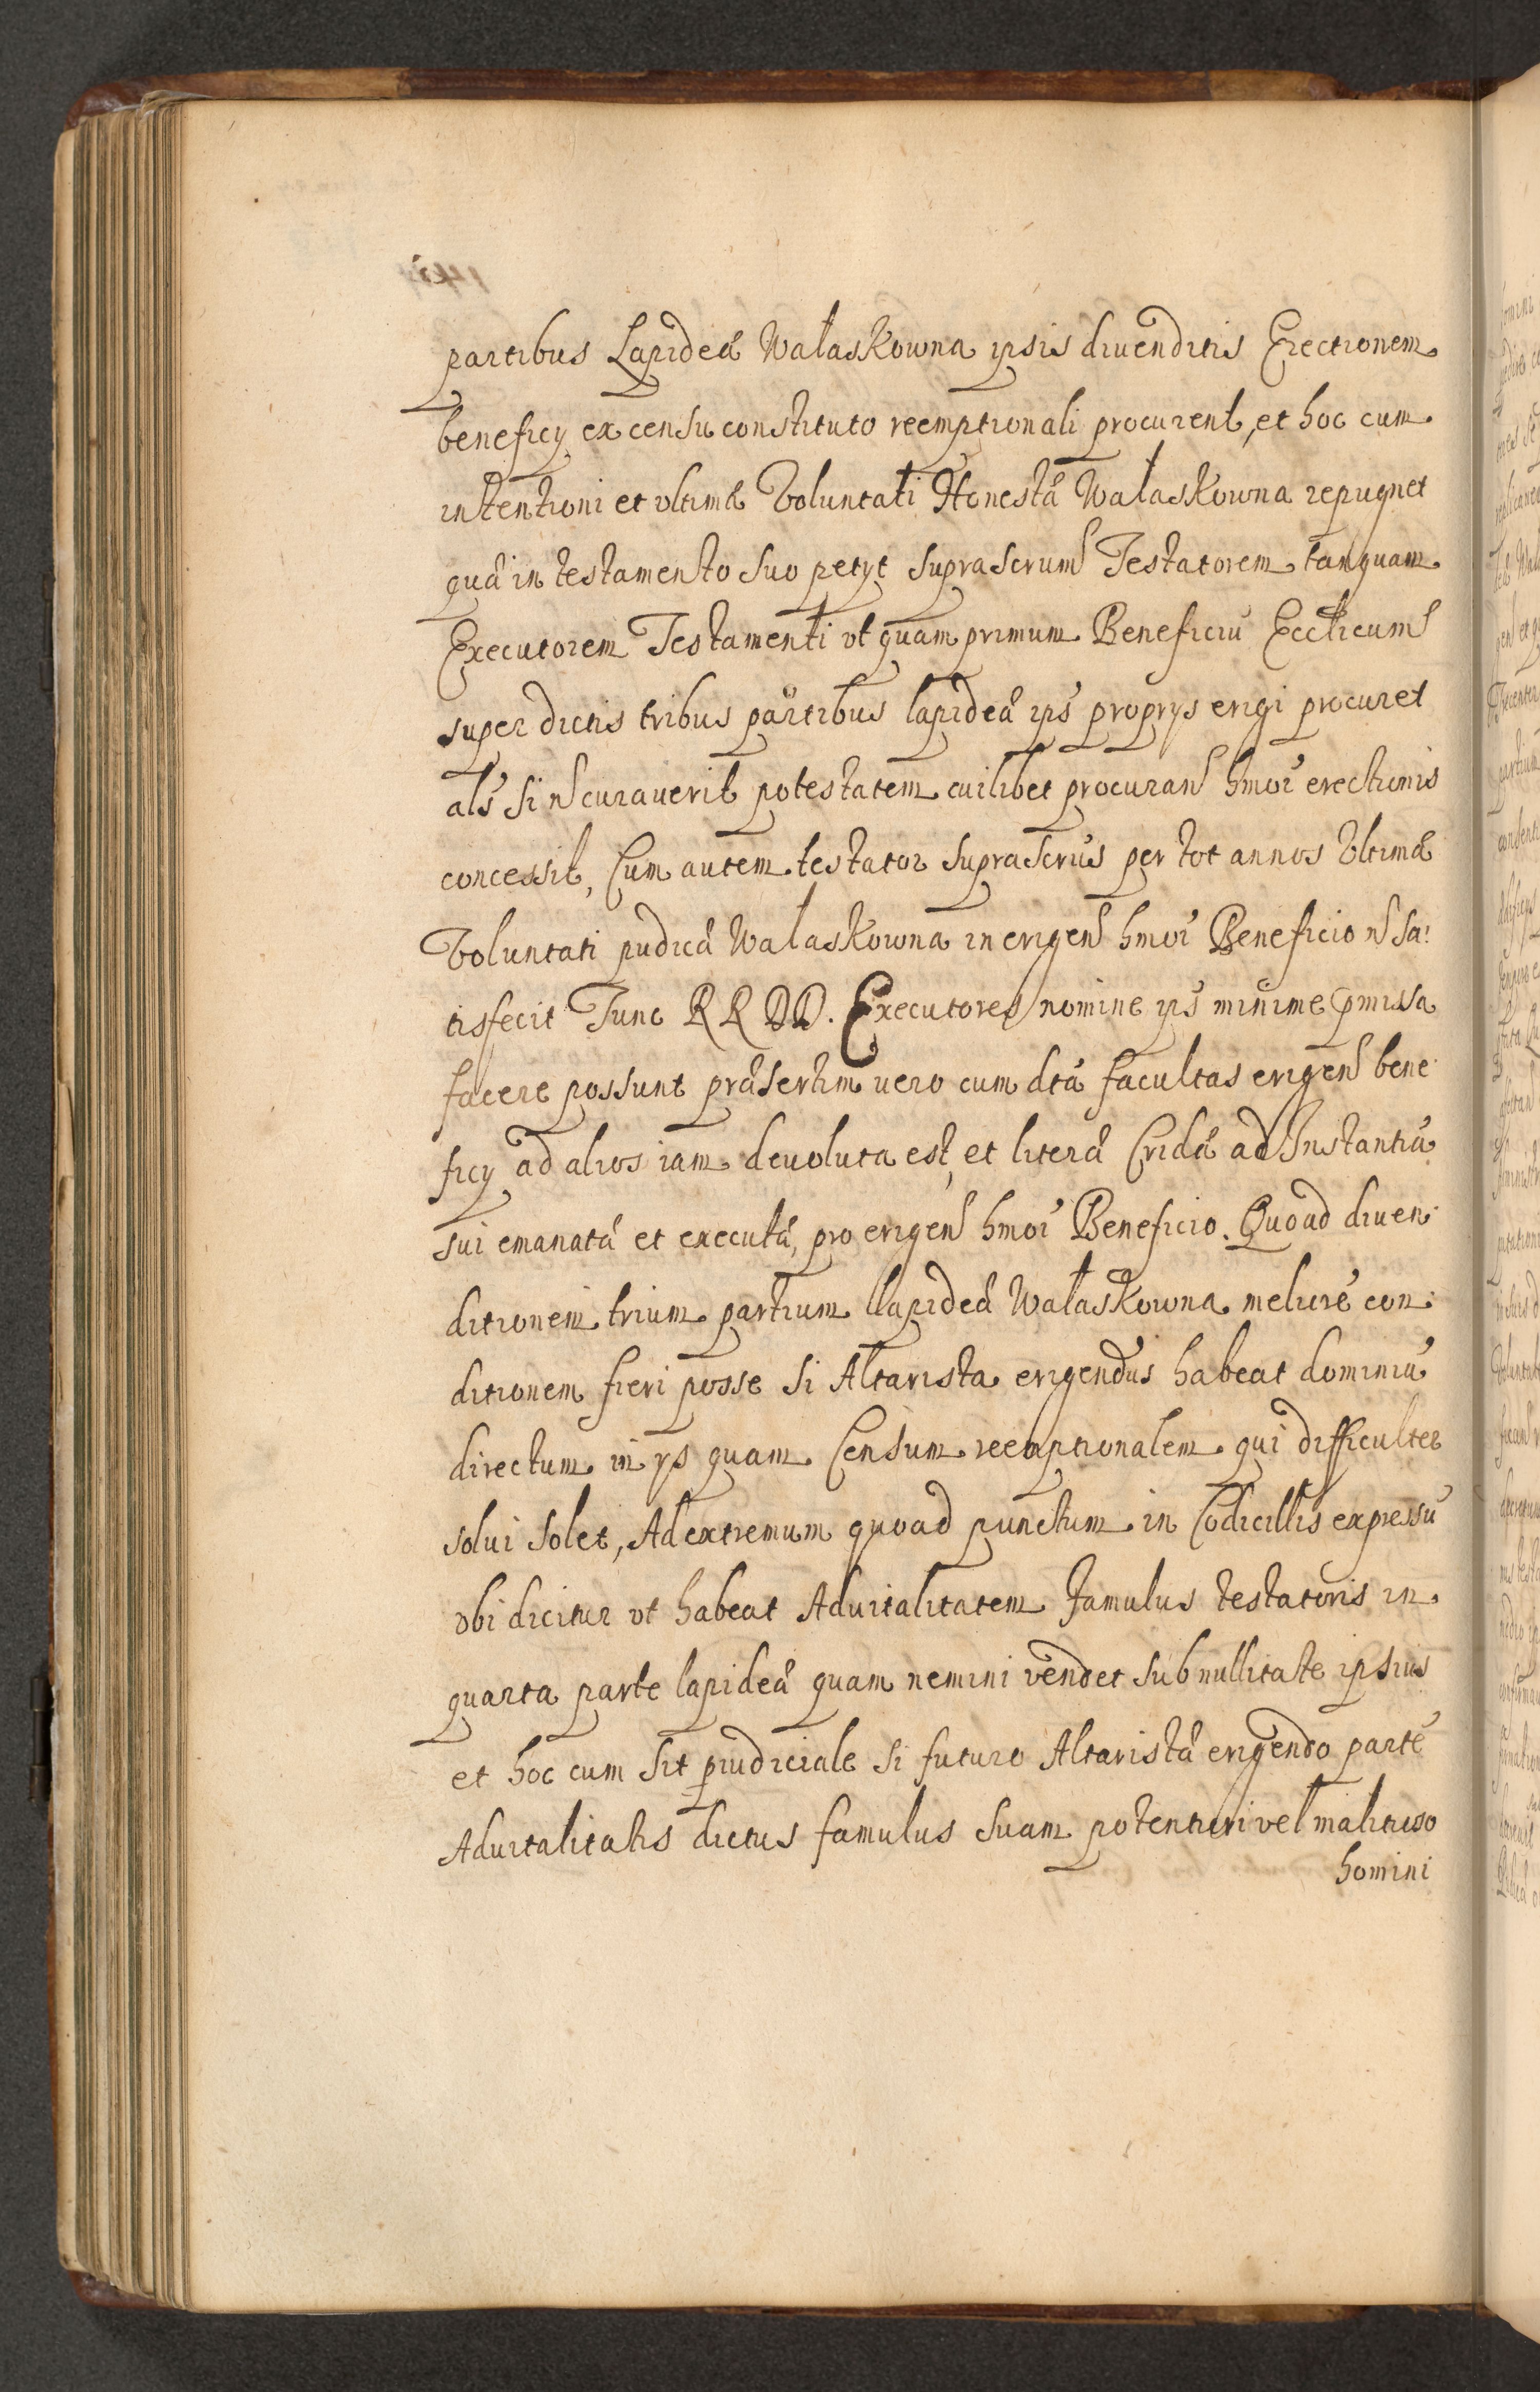 partibus Lapideæ Wałaskowna ipsis diuenditis Erectionem
beneficy ex censu constituto reemptionali procurent, et hoc cum
intentioni et vltimæ Voluntati Honestæ Wałaskowna repugnet
quæ in testamento suo petyt suprascrum Testatorem tanquam
Executorem Testamenti vt quam primum Beneficiu Eccticum
super dictis tribus partibus lapideæ ips proprys erigi procuret
als si n curauerit potestatem cuilibet procuran hmoi erectionis
concessit, Cum autem testator suprascrus per tot annos Vltimæ
Voluntati pudicæ Wałaskowna in erigen hmoi Beneficio n sa:
tisfecit Tunc RR DD. Executores nomine ips minime pmissa
facere possunt præsertim uero cum dta facultas erigen bene
ficy ad alios iam deuoluta est, et literæ Cridæ ad Instantiā
sui emanatæ et executæ, pro erigen hmoi Beneficio. Quoad diuen:
ditionem trium partium llapideæ Wałaskowna meliore con:
ditionem fieri posse si Altarista erigendus habeat dominiū
directum in ys quam Censum reemptionalem qui difficulter
solui solet, Ad extremum quoad punctum in Codicillis expressū
vbi dicitur vt habeat Aduitalitatem famulus testatoris in
quarta parte lapideæ quam nemini vendet sub nullitate ipsius
et hoc cum sit piudiciale si futuro Altaristæ erigendo partē
Aduitalitatis dictus famulus suam potentiori vel malitioso
homini